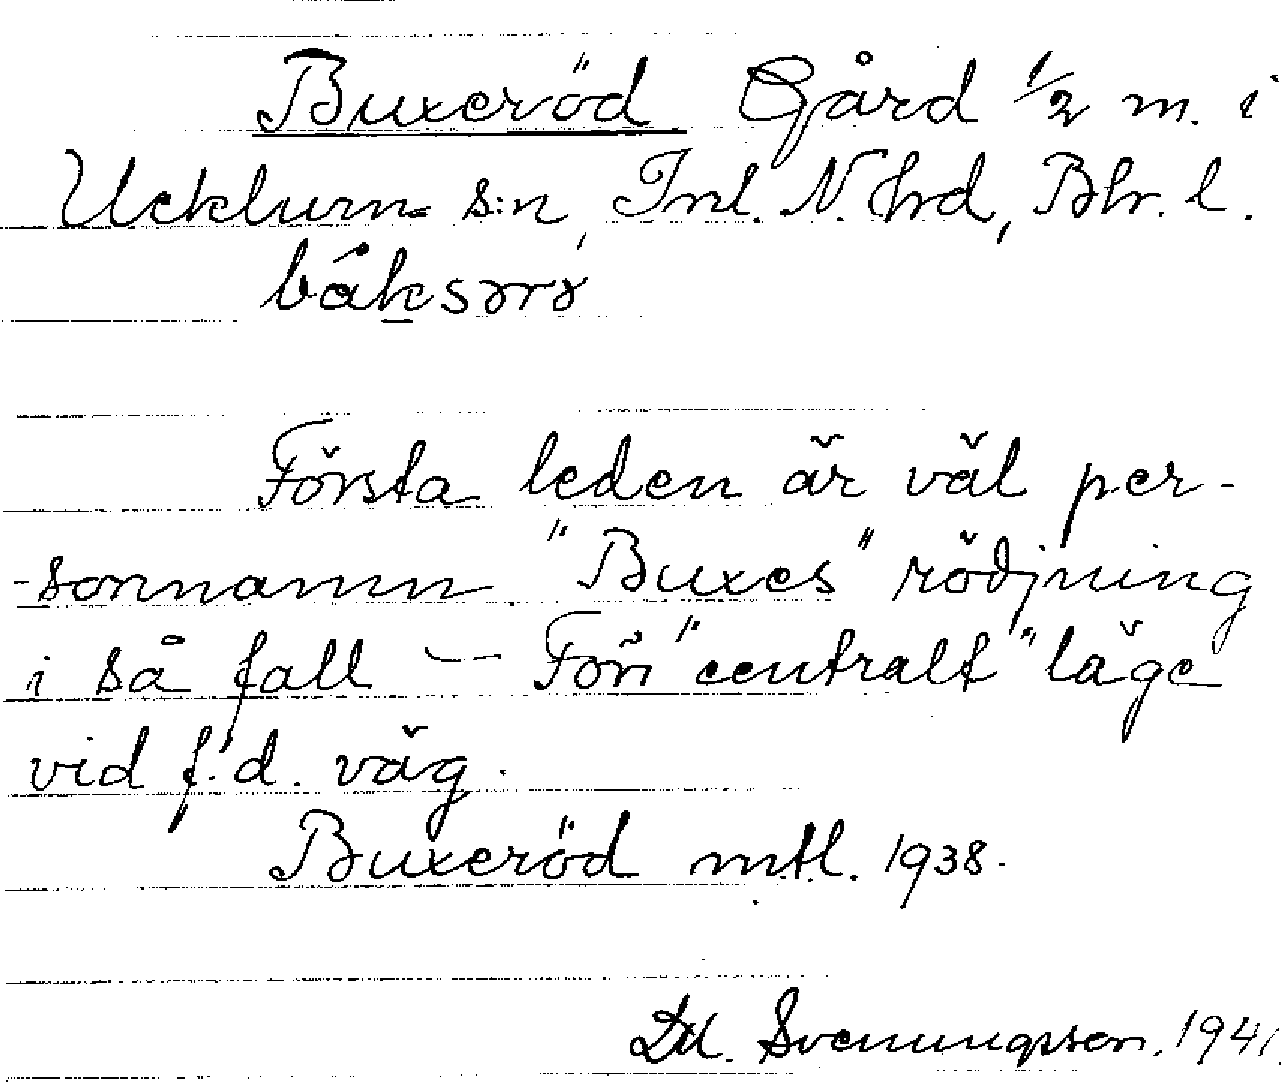 Buxeröd Gård 1/2 m. i
Ucklum s:n, Inl. N. hrd, Bhr. l.
Första leden är väl per-
-sonnamn "Buxes" rödjning
i så fall — För "centralt" läge
vid f.d. väg.
Buxeröd mtl. 1938.
Dd. Svenungsson. 1941.